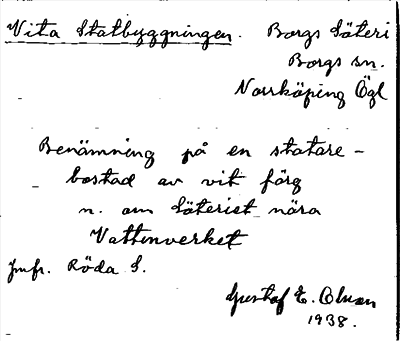 Vita Statbyggningen. Borgs Säteri
Borgs sn.
Norrköping Ögl
Benämning på en statare-
bostad av vit färg
n. om Säteriet nära
Vattenverket
Jmfr. Röda S.
Gustaf E.
1938.